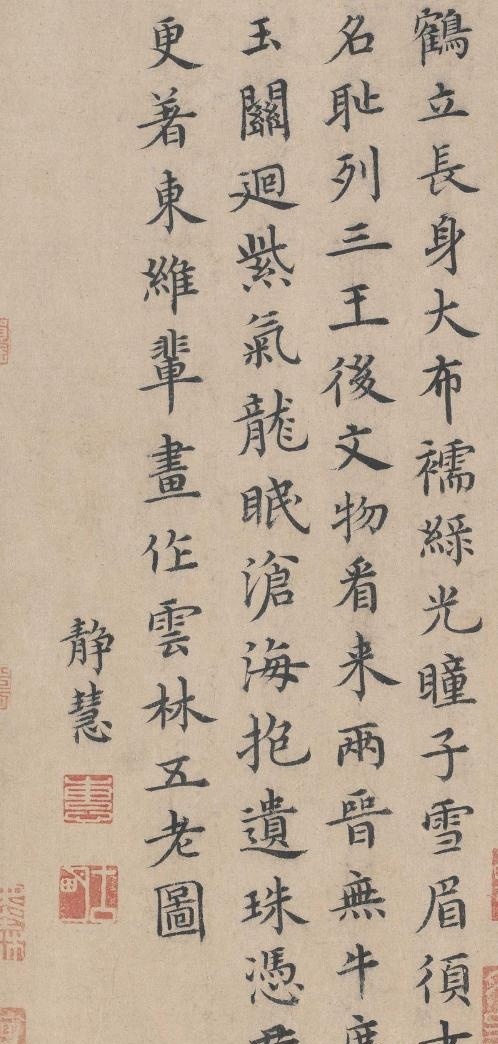 鶴立長身大布襦綠光瞳子雪眉須
名耻列三王後文物看来兩晉無牛
玉關迴紫氣龍眠滄海抱遺珠憑
更著東維輩畫作雲林五老圖
静慧